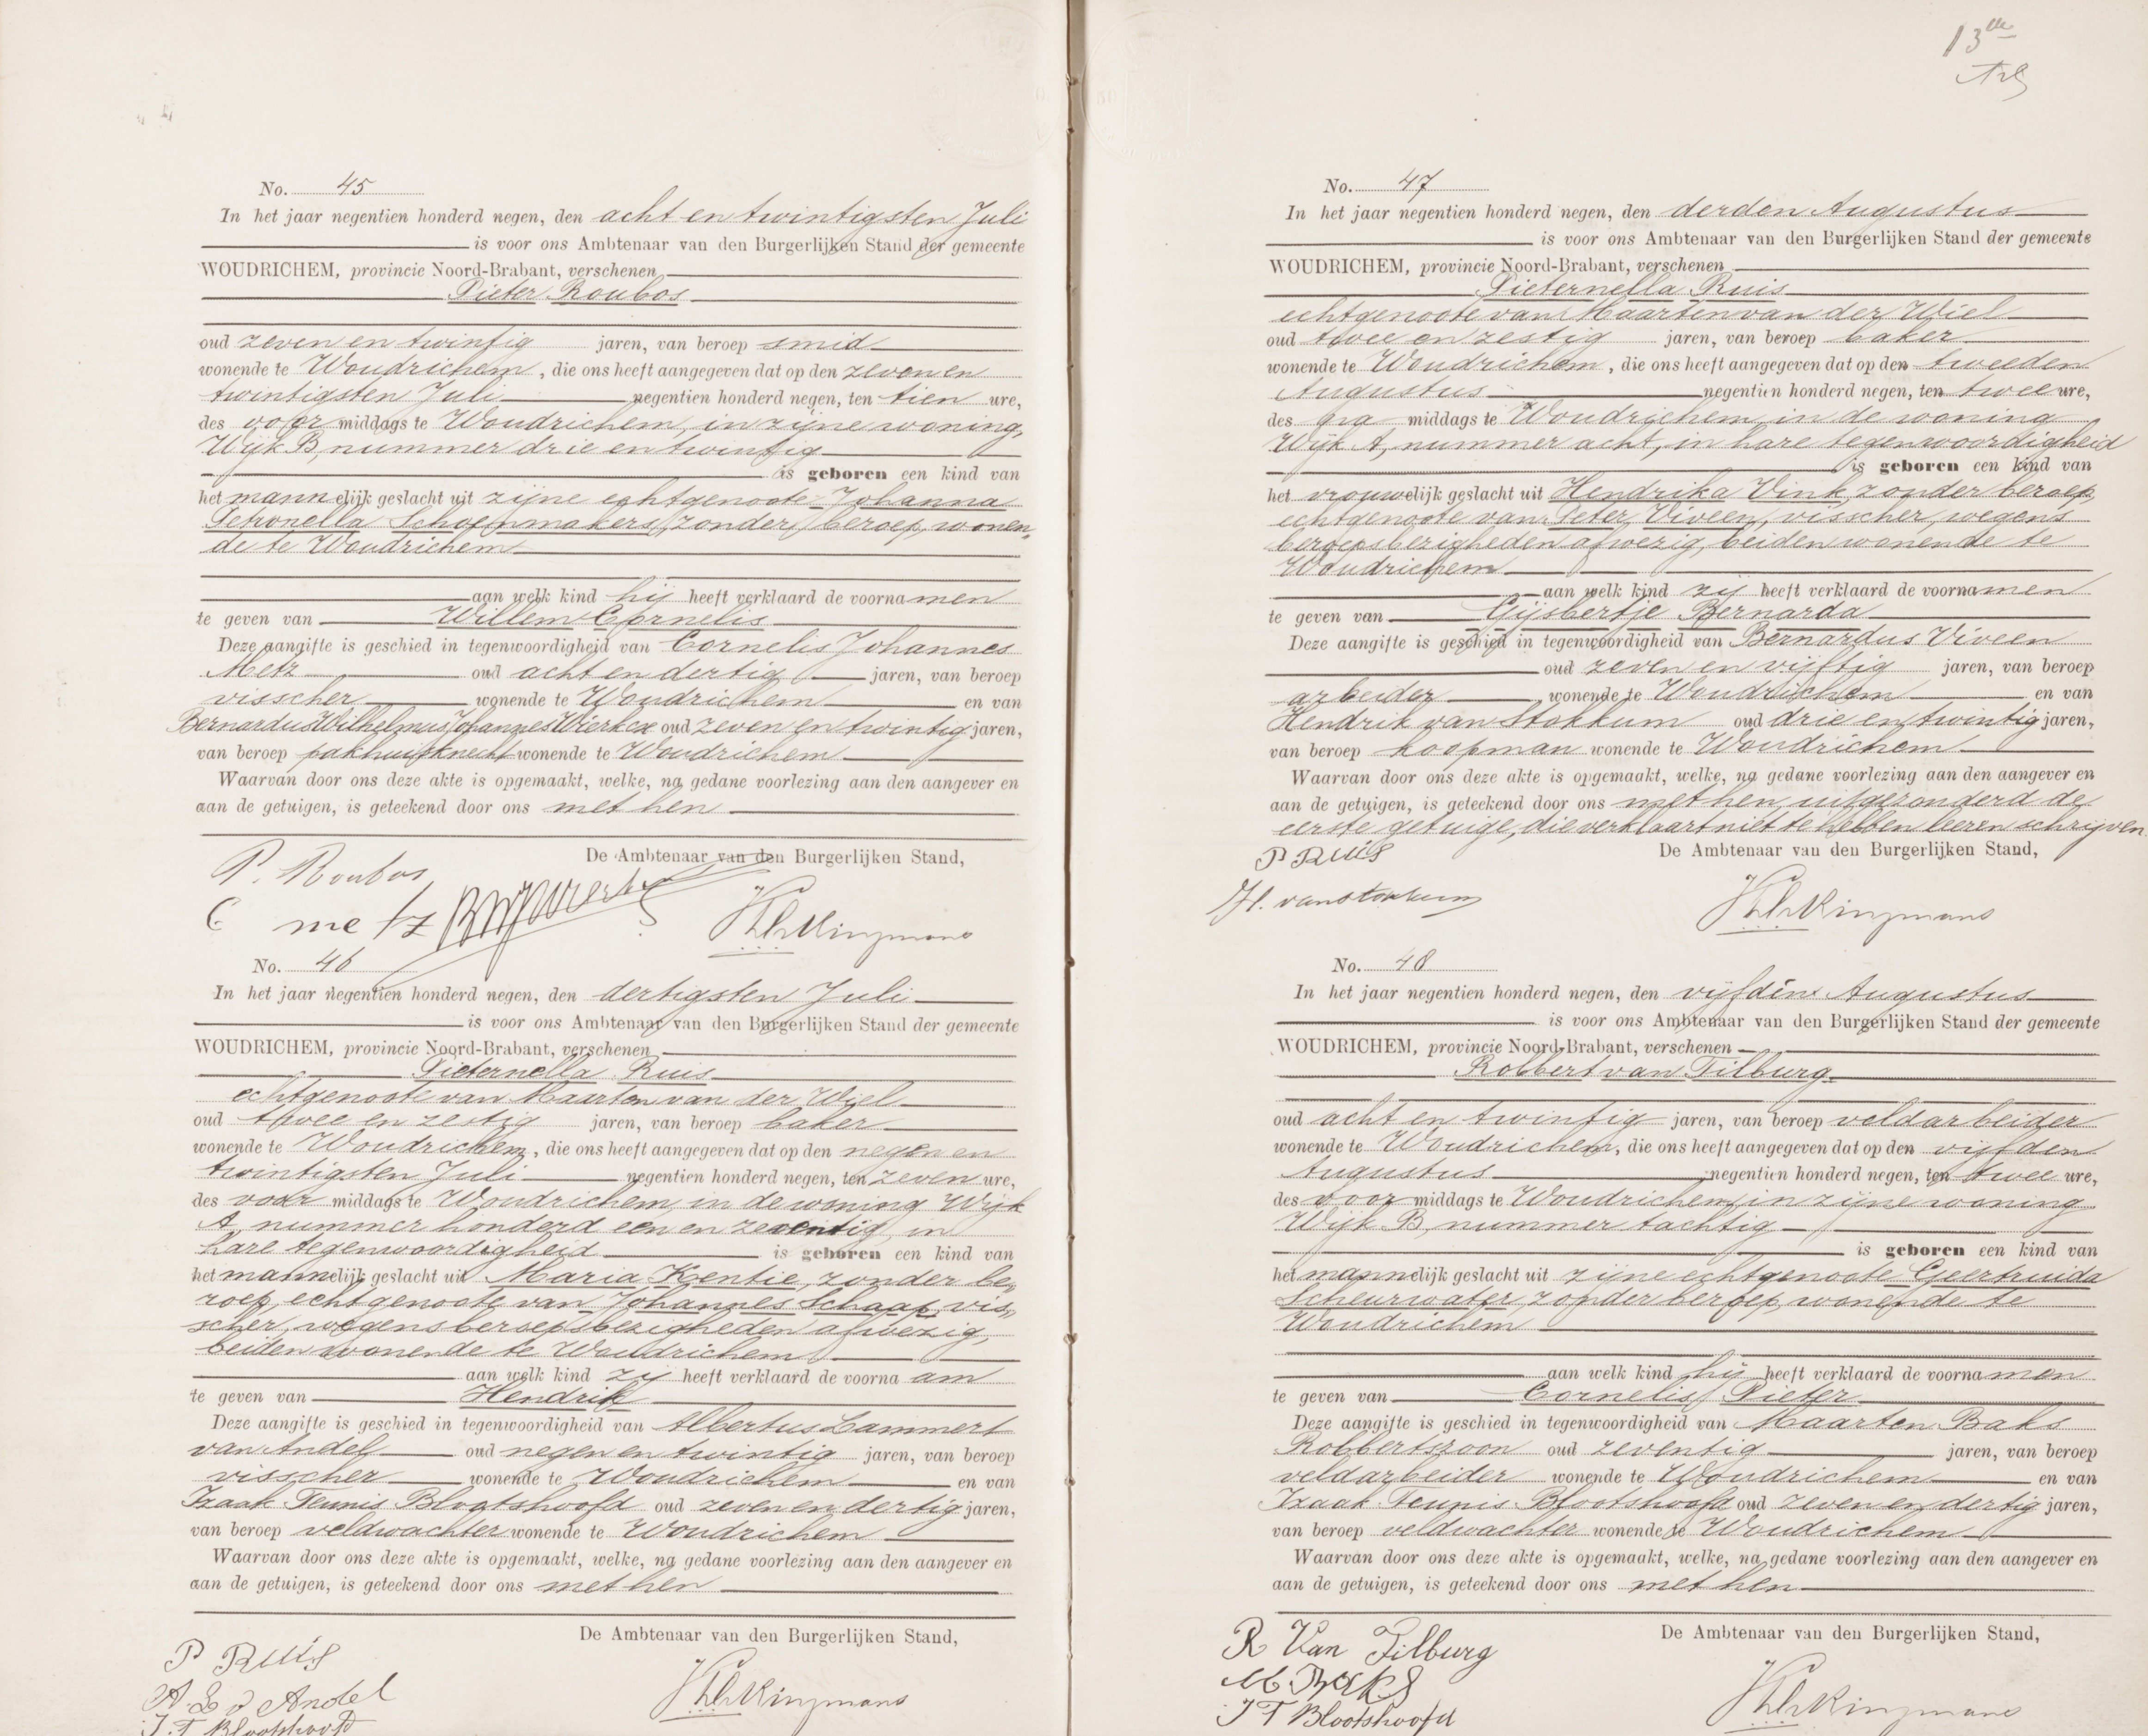 No. 45
In het jaar negentien honderd negen, den acht en twintigsten Juli
is voor ons Ambtenaar van den Burgerlijken Stand der gemeente
WOUDRICHEM, provincie Noord-Brabant, verschenen
Pieter Roubos
oud zeven en twintig jaren, van beroep smid
wonende te Woudrichem, die ons heeft aangegeven dat op den zeven en
twintigsten Juli negentien honderd negen, ten tien ure,
des voor middags te Woudrichem, in zijne woning,
Wijk B, nummer drie en twintig
is geboren een kind van
het mannelijk geslacht uit zijne echtgenoote Johanna
Petronella Schoenmakers, zonder beroep, wonen„
de te Woudrichem
aan welk kind hij heeft verklaard de voornamen
te geven van Willem Cornelis
Deze aangifte is geschied in tegenwoordigheid van Cornelis Johannes
Metz oud acht en dertig jaren, van beroep
visscher wonende te Woudrichem en van
Bernardus Wilhelmus Johannes Wierkx oud zeven en twintig jaren,
van beroep pakhuisknecht wonende te Woudrichem
Waarvan door ons deze akte is opgemaakt, welke, na gedane voorlezing aan den aangever en
aan de getuigen, is geteekend door ons met hen
De Ambtenaar van den Burgerlijken Stand,
P. Roubos
C metz
No. 46
In het jaar negentien honderd negen, den dertigsten Juli
is voor ons Ambtenaar van den Burgerlijken Stand der gemeente
WOUDRICHEM, provincie Noord-Brabant, verschenen
Pieternella Ruis
echtgenoote van Maarten van der Wiel
oud twee en zestig jaren, van beroep baker
wonende te Woudrichem, die ons heeft aangegeven dat op den negen en
twintigsten Juli negentien honderd negen, ten zeven ure,
des voor middags te Woudrichem, in de woning Wijk
A, nummer honderd een en zeventig, in
hare tegenwoordigheid is geboren een kind van
het mannelijk geslacht uit Maria Kentie, zonder be„
roep, echtgenoote van Johannes Schaap, vis„
scher, wegens beroepsbezigheden afwezig,
beiden wonende te Woudrichem
aan welk kind zij heeft verklaard de voorna am
te geven van Hendrik
Deze aangifte is geschied in tegenwoordigheid van Albertus Lammert
van Andel oud negen en twintig jaren, van beroep
visscher wonende te Woudrichem en van
Izaak Teunis Blootshoofd oud zeven en dertig jaren,
van beroep veldwachter wonende te Woudrichem
Waarvan door ons deze akte is opgemaakt, welke, na gedane voorlezing aan den aangever en
aan de getuigen, is geteekend door ons met hen
De Ambtenaar van den Burgerlijken Stand,
P Ruis
A. L v Andel
J. T Blootshoofd
13de
No. 47
In het jaar negentien honderd negen, den derden Augustus
is voor ons Ambtenaar van den Burgerlijken Stand der gemeente
WOUDRICHEM, provincie Noord-Brabant, verschenen
Pieternella Ruis
echtgenoote van Maarten van der Wiel
oud twee en zestig jaren, van beroep baker
wonende te Woudrichem, die ons heeft aangegeven dat op den tweeden
Augustus negentien honderd negen, ten twee ure,
des na middags te Woudrichem, in de woning
Wijk A, nummer acht, in hare tegenwoordigheid
is geboren een kind van
het vrouwelijk geslacht uit Hendrika Vink, zonder beroep,
echtgenoote van Peter Viveen, visscher, wegens
beroepsbezigheden afwezig, beiden wonende te
Woudrichem
aan welk kind zij heeft verklaard de voornamen
te geven van Gijsbertje Bernarda
Deze aangifte is geschied in tegenwoordigheid van Bernardus Viveen
oud zeven en vijftig jaren, van beroep
arbeider wonende te Woudrichem en van
Hendrik van Stokkum oud drie en twintig jaren,
van beroep koopman wonende te Woudrichem
Waarvan door ons deze akte is opgemaakt, welke, na gedane voorlezing aan den aangever en
aan de getuigen, is geteekend door ons met hen, uitgezonderd de
eerste getuige, die verklaart niet te hebben leeren schrijven
P Ruis De Ambtenaar van den Burgerlijken Stand,
H. van stokkum
No. 48
In het jaar negentien honderd negen, den vijfden Augustus
is voor ons Ambtenaar van den Burgerlijken Stand der gemeente
WOUDRICHEM, provincie Noord-Brabant, verschenen
Robbert van Tilburg
oud acht en twintig jaren, van beroep veldarbeider
wonende te Woudrichem, die ons heeft aangegeven dat op den vijfden
Augustus negentien honderd negen, ten twee ure,
des voor middags te Woudrichem, in zijne woning
Wijk B, nummer tachtig
is geboren een kind van
het mannelijk geslacht uit zijne echtgenoote Geertruida
Scheurwater, zonder beroep, wonende te
Woudrichem
aan welk kind hij heeft verklaard de voornamen
te geven van Cornelis Pieter
Deze aangifte is geschied in tegenwoordigheid van Maarten Baks
Robbertszoon oud zeventig jaren, van beroep
veldarbeider wonende te Woudrichem en van
Izaak Teunis Blootshoofd oud zeven en dertig jaren,
van beroep veldwachter wonende te Woudrichem
Waarvan door ons deze akte is opgemaakt, welke, na gedane voorlezing aan den aangever en
aan de getuigen, is geteekend door ons met hen
De Ambtenaar van den Burgerlijken Stand,
R Van Tilburg
M Baks
J T Blootshoofd